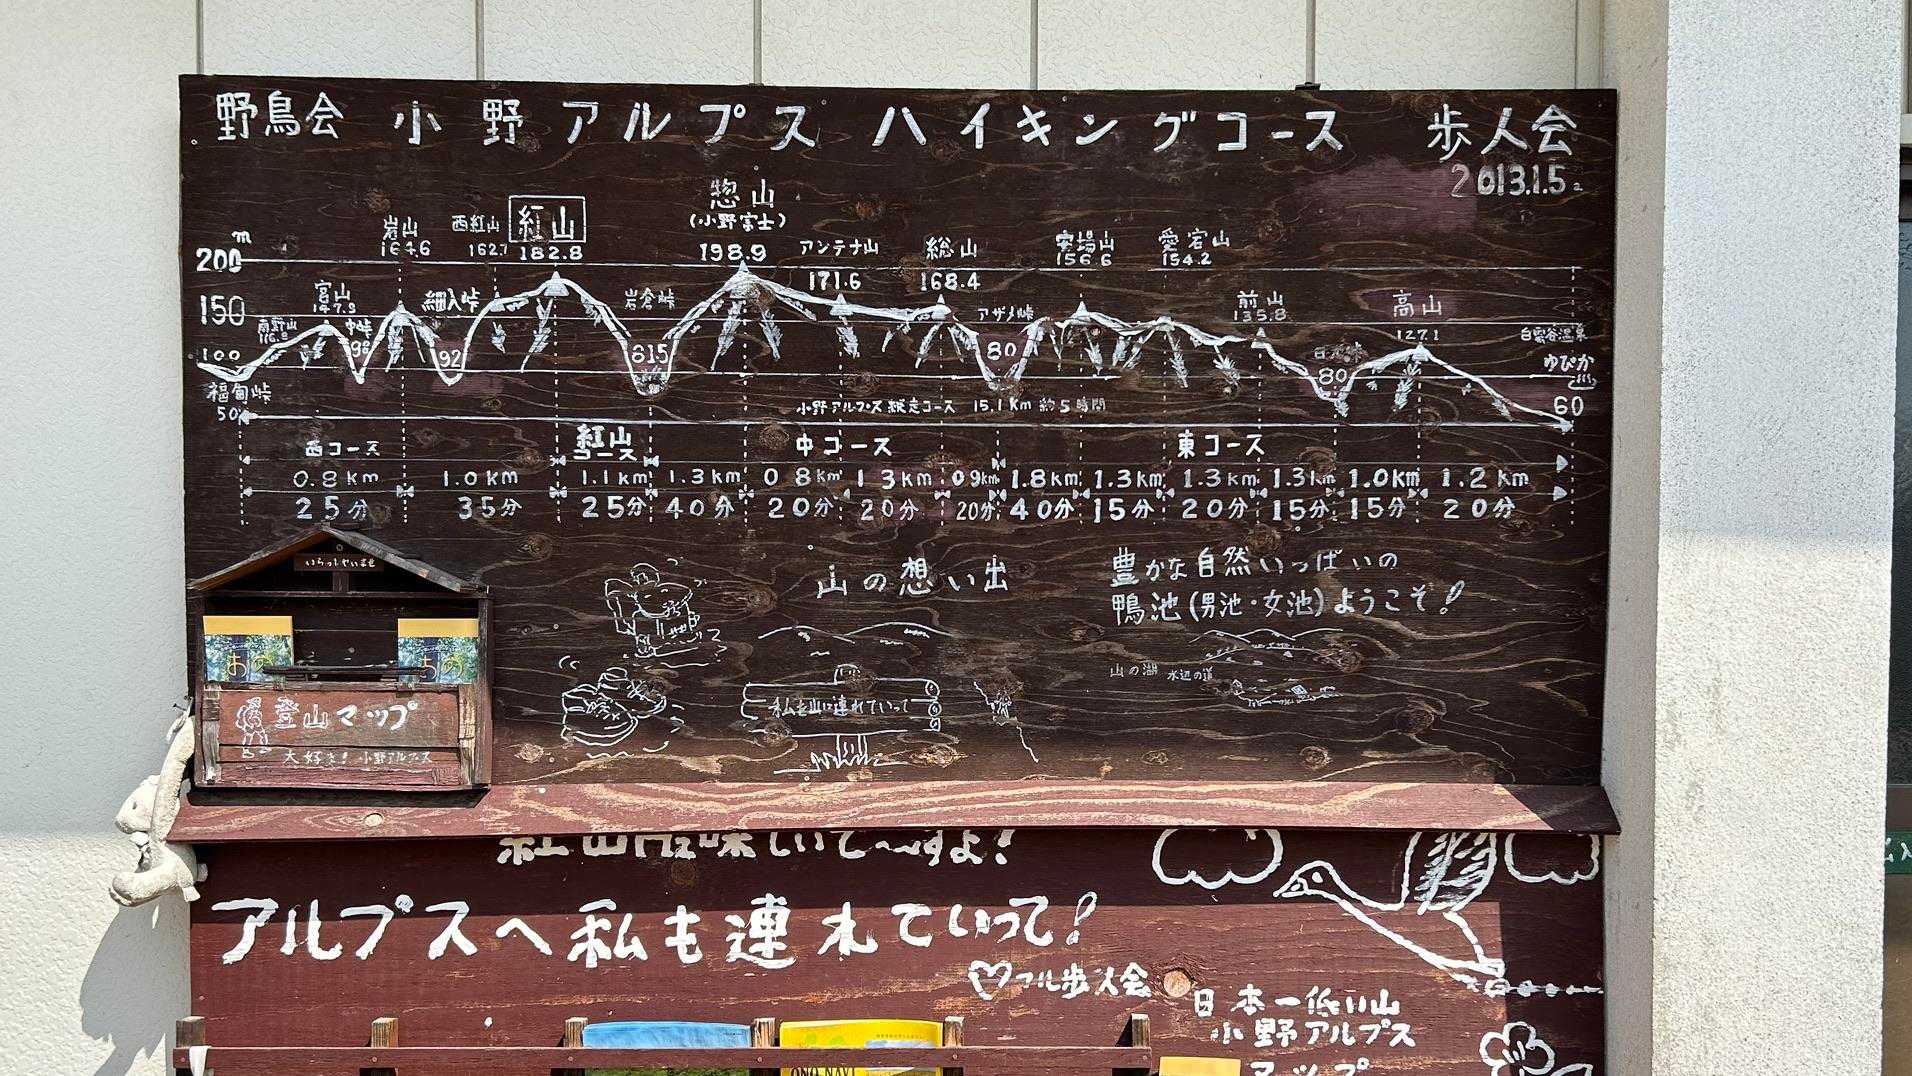 野鳥会 小野アルプス ハイキングコース 歩人会
2013.1.5
惣山
(小野富士)
198.9
岩山
164.6
西紅山
162.7
紅山
182.8
アンテナ山
171.6
総山
168.4
安場山
156.6
愛宕山
154.2
200m
150
100
50
宮山
147.9
南野山
中峠
98
細入峠
92
岩倉峠
815
アザメ峠
80
前山
135.8
80
高山
127.1
白雲谷温泉
ゆぴか
60
福甸峠
小野アルプス縦走コース 15.1Km 約5時間
西コース 紅山コース 中コース 東コース
0.8km 1.0km 1.1km 1.3km 0.8km 1.3km 0.9km 1.8km 1.3km 1.3km 1.3km 1.0km 1.2km
25分 35分 25分 40分 20分 20分 20分 40分 15分 20分 15分 15分 20分
いらっしゃいませ
おの
おの
登山マップ
大好き!小野アルプス
山の想い出
私も山に連れていって
豊かな自然いっぱいの
鴨池(男池・女池)ようこそ!
山の湖 水辺の道
アルプスへ私も連れていって!
フル歩人会
日本一低い山
小野アルプス
マップ
ONO NAVI